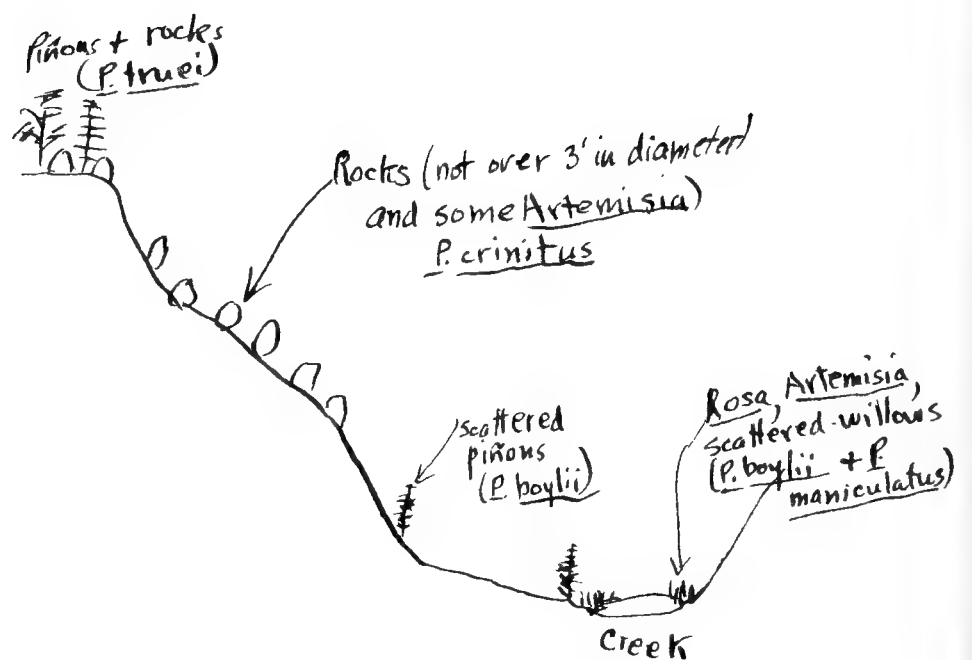 Piñons + rocks
(P. truei)
Rocks (not over 3' in diameter)
and some Artemisia)
P. crinitus
scattered
piñons
(P. boylii)
Rosa, Artemisia,
scattered willows
(P. boylii + P.
maniculatus)
Creek